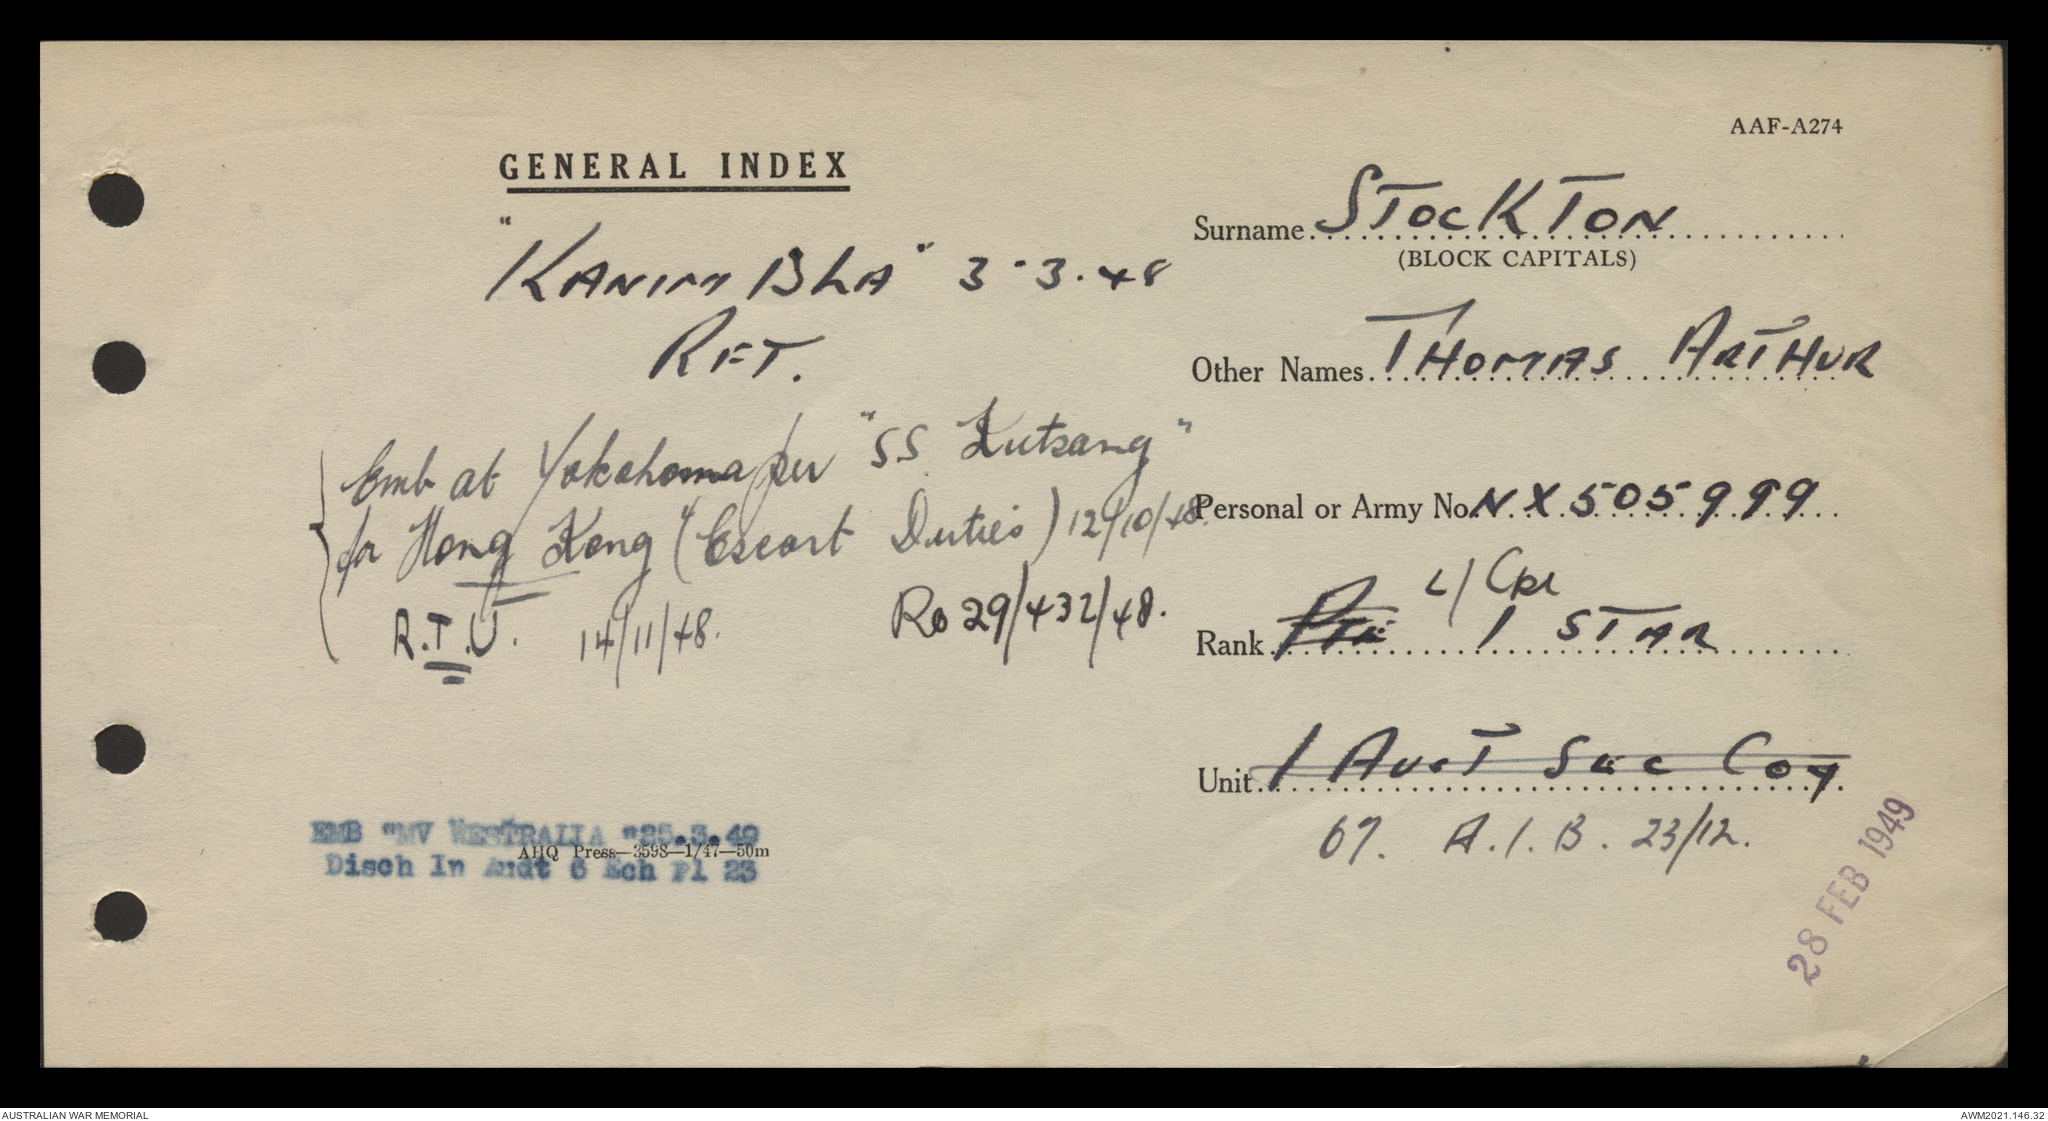 AAF-A274
GENERAL INDEX
"KANIMBLA" 3-3.48
RFT.
Emb at Yokohoma per "SS Kutsang"
for Hong Kong (Escort Duties) 12/10/48.
R.T.U. 14/11/48. Ro 29/432/48.
EMB "MV WESTRALIA "25.3.49
Disch In Audt 6 Ech Pl 23
AHQ Press—3598—1/47—50m
Surname STOCKTON
(BLOCK CAPITALS)
Other Names THOMAS ARTHUR
Personal or Army No. NX505999
L/Cpl
Rank Pte 1 STAR
Unit 1 AUST SEC COY
67. A.I.B. 23/12.
28 FEB 1949
AUSTRALIAN WAR MEMORIAL
AWM2021.146.32